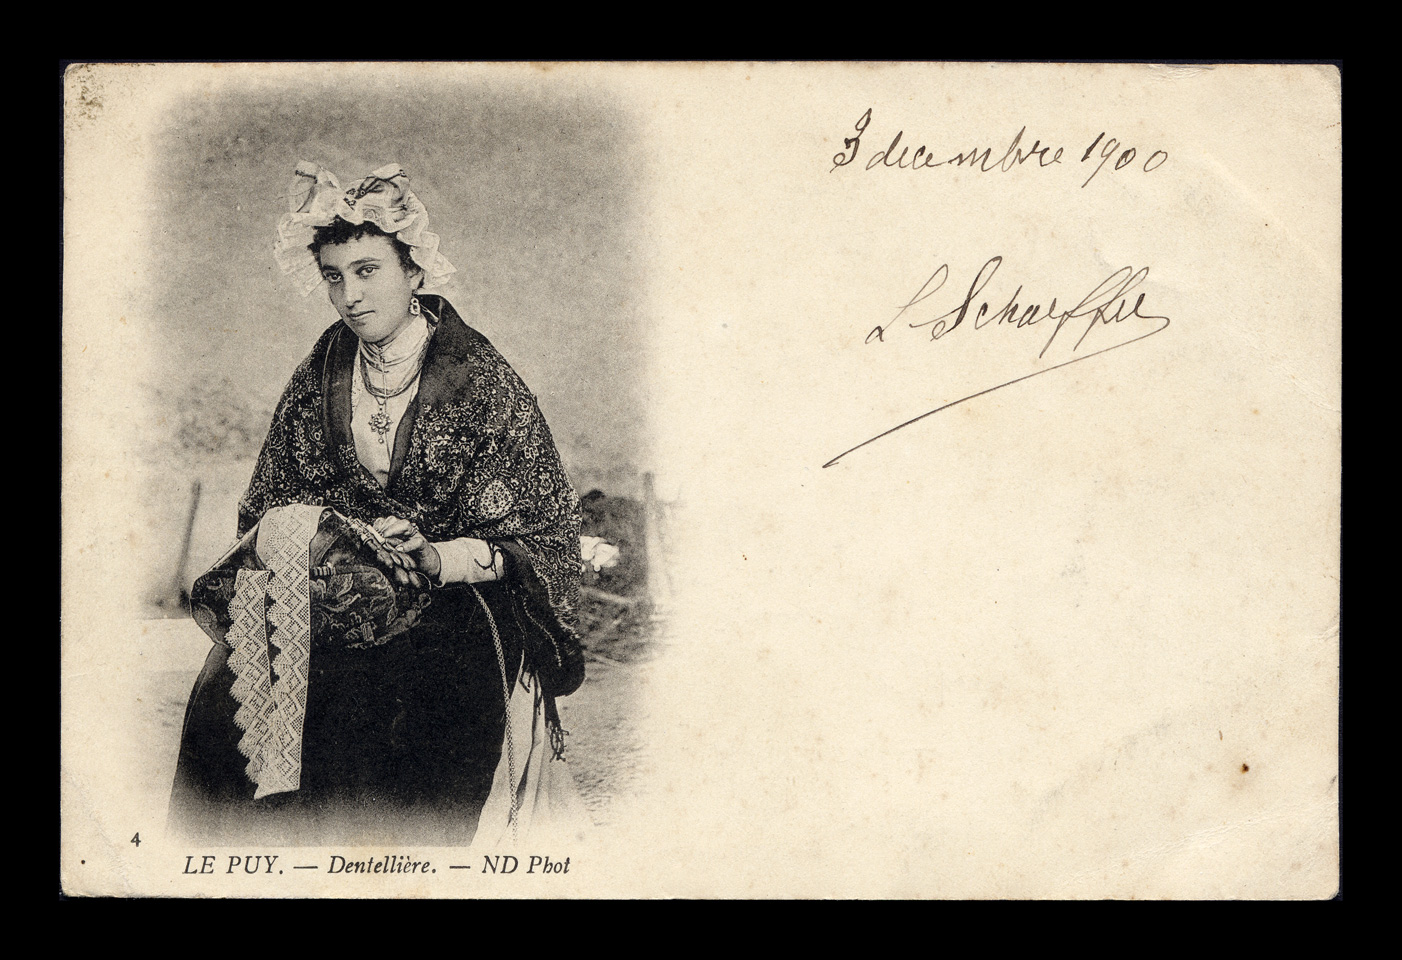 3 decembre 1900
L Schaeffer
4
LE PUY. — Dentellière. — ND Phot